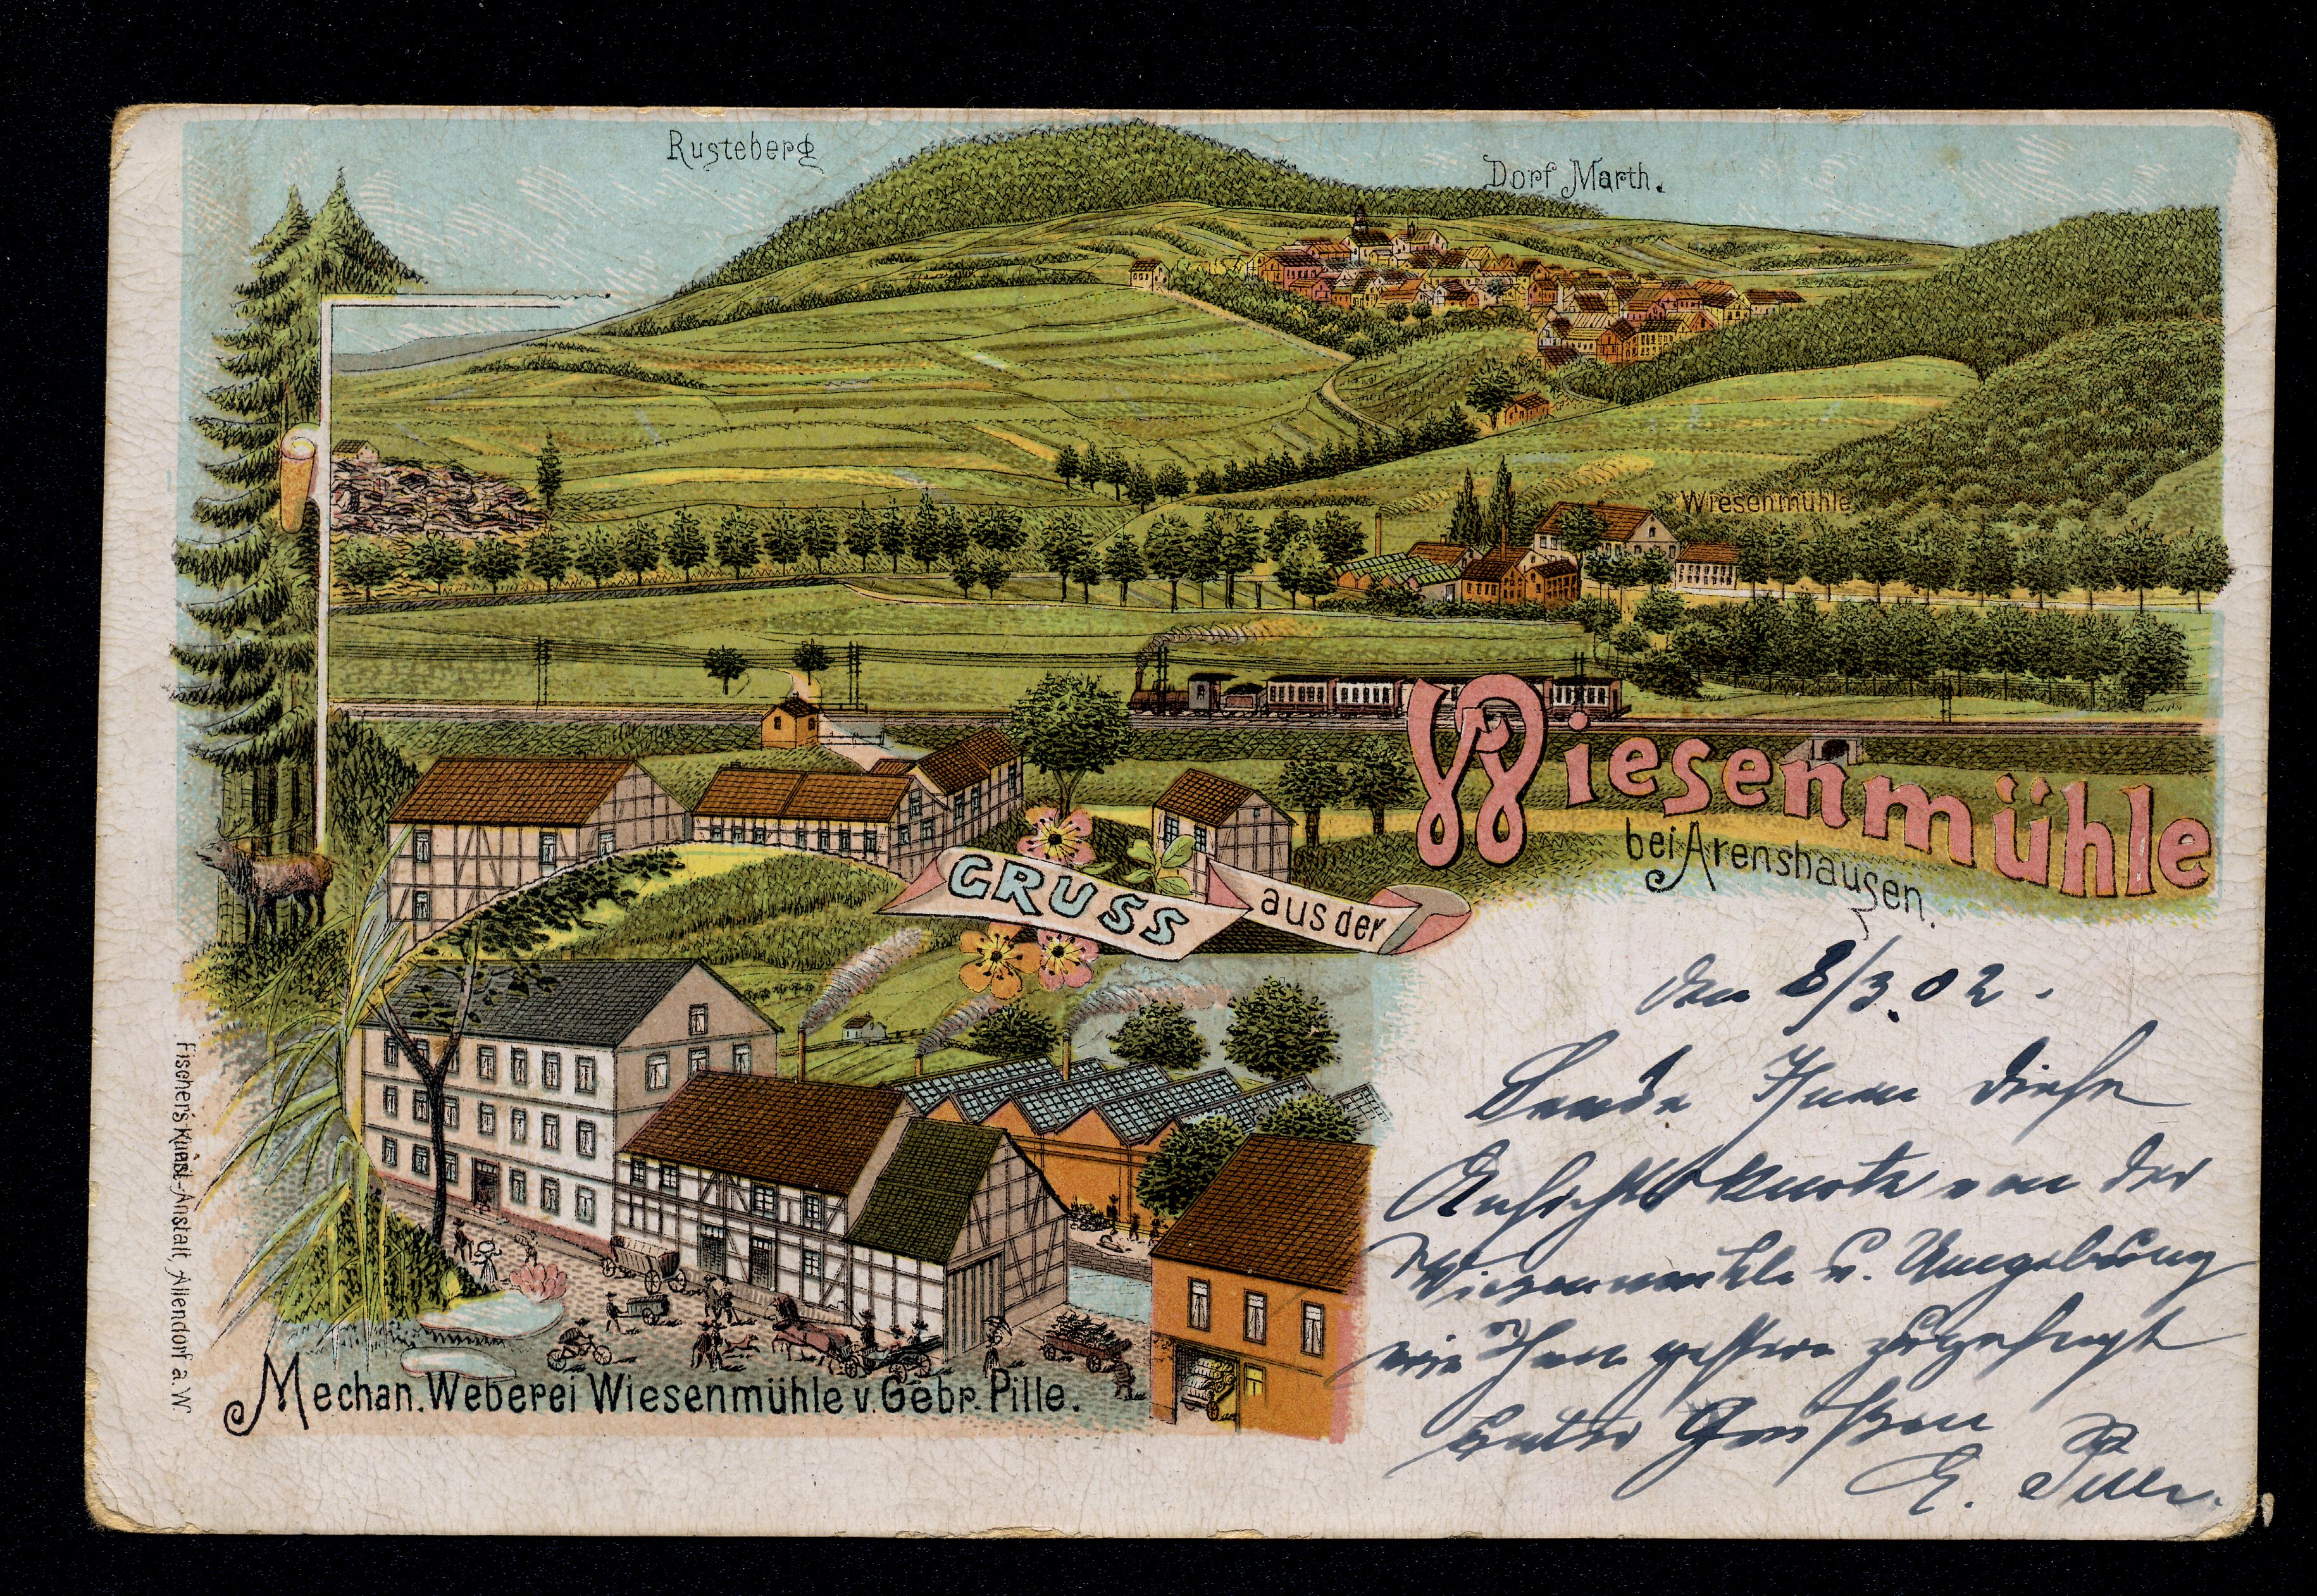 Rusteberg
Dorf Marth.
Wiesenmühle
GRUSS aus der
Wiesenmühle
bei Arenshausen.
den 8/3. 02.
Sende Ihnen diese
Ansichtskarte von der
Wiesenmühle u. Umgebung
wie Ihnen gestern zugesagt
Unter Grüßen
E. Pille.
Mechan. Weberei Wiesenmühle v. Gebr. Pille.
Fischer's Kunst-Anstalt, Allendorf a. W